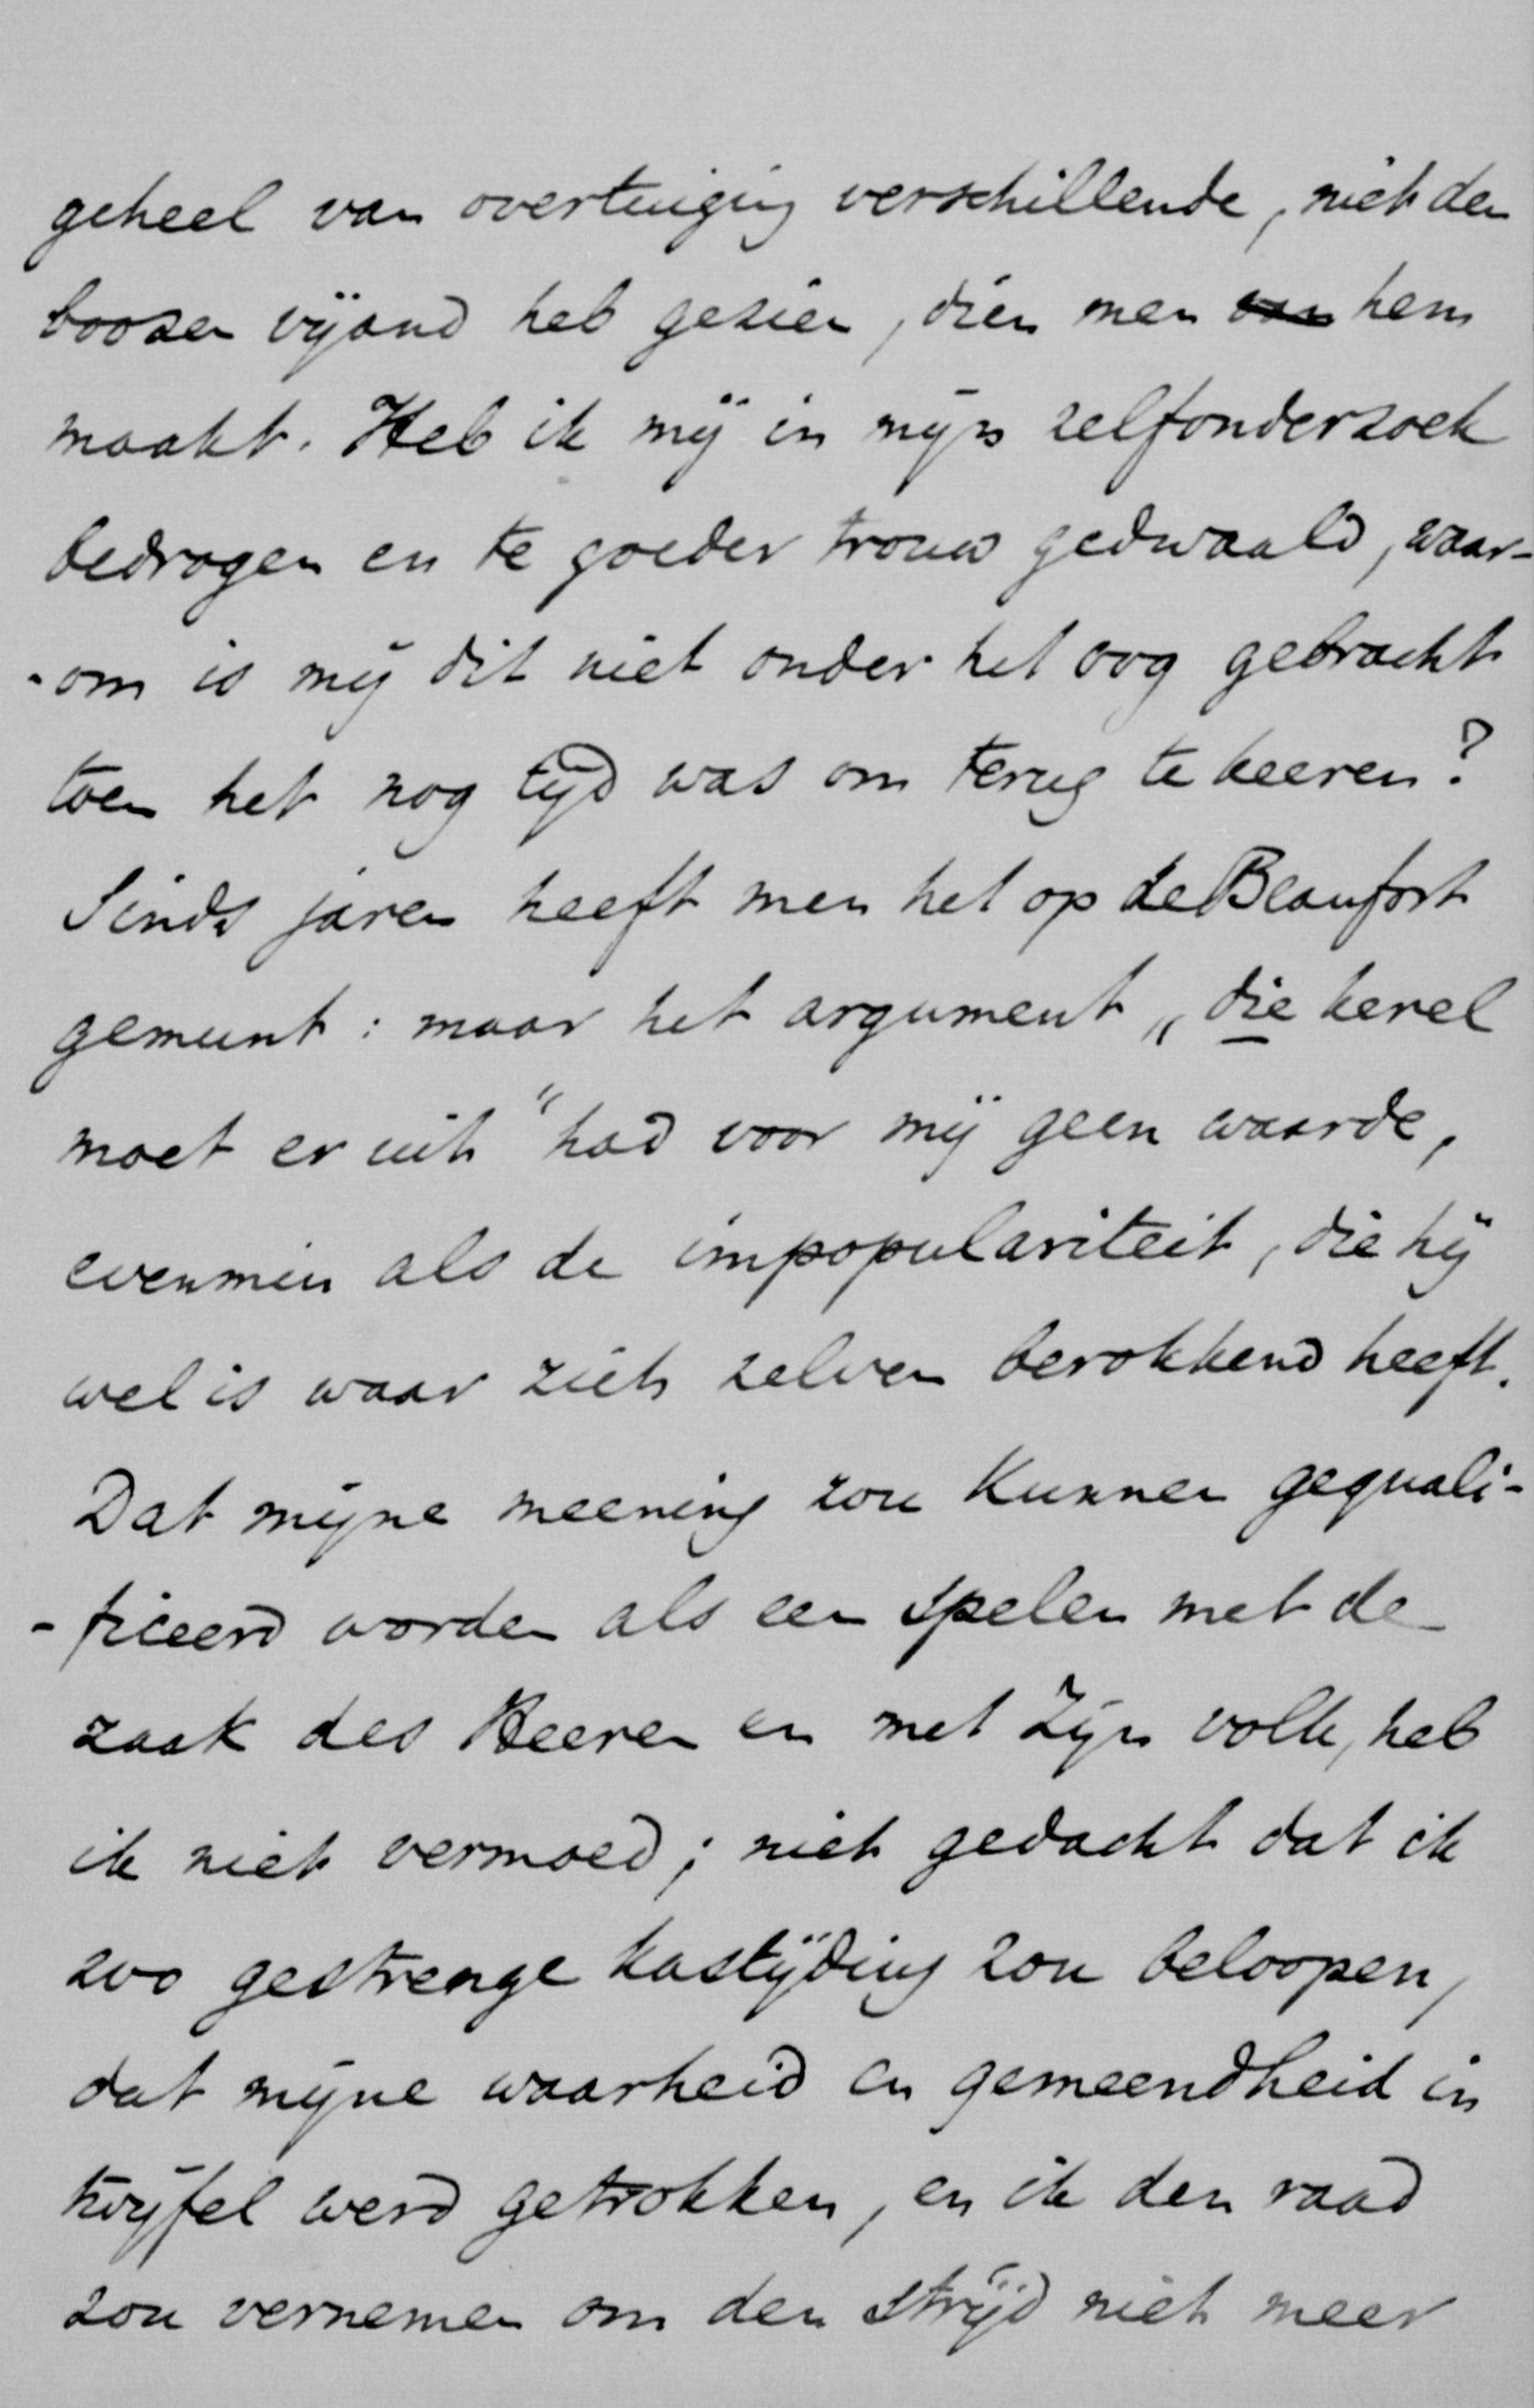 geheel van overtuiging verschillende, niet den
boozen vijand heb gezien, dien men van hem
maakt. Heb ik mij in mijn zelfonderzoek
bedrogen en te goeder trouw gedwaald, waar-
-om is mij dit niet onder het oog gebracht
toen het nog tijd was om terug te keeren?
Sinds jaren heeft men het op de Beaufort
gemunt: maar het argument „die kerel
moet er uit“ had voor mij geen waarde,
evenmin als de impopulariteit, die hij
wel is waar zich zelven berokkend heeft.
Dat mijne meening zou kunnen gequali-
-ficeerd worden als een spelen met de
zaak des Heeren en met Zijn volk, heb
ik niet vermoed; niet gedacht dat ik
zoo gestrenge kastijding zou beloopen,
dat mijne waarheid en gemeendheid in
twijfel werd getrokken, en ik den raad
zou vernemen om den strijd niet meer